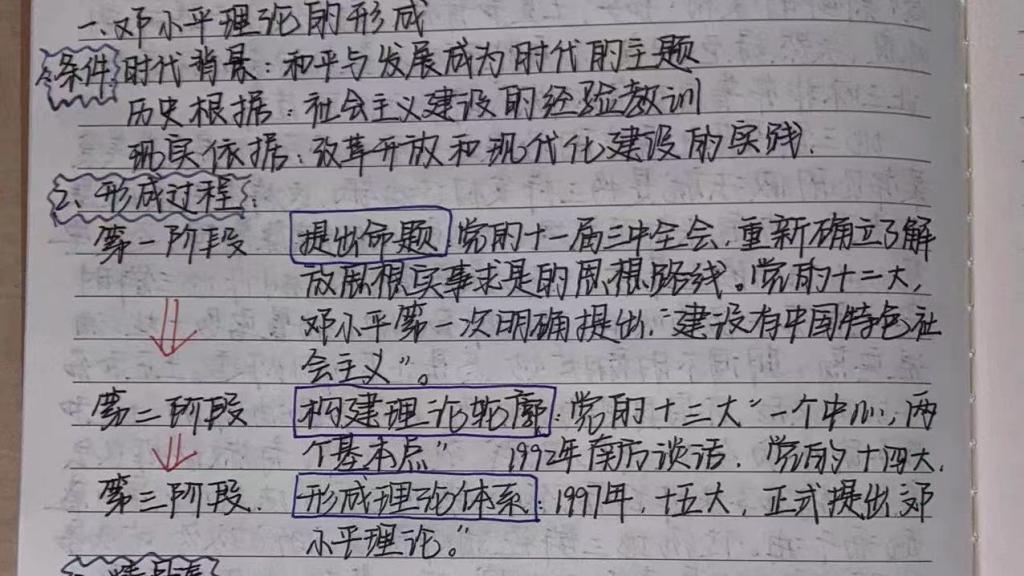 一、邓小平理论的形成
1、条件 时代背景：和平与发展成为时代的主题
历史根据：社会主义建设的经验教训
现实依据：改革开放和现代化建设的实践．
2、形成过程：
第一阶段 提出命题 党的十一届三中全会，重新确立了解
放思想实事求是的思想路线。党的十二大，
邓小平第一次明确提出，“建设有中国特色社
会主义”。
第二阶段 构建理论轮廓：党的十三大“一个中心，两
个基本点” 1992年南方谈话．党的十四大．
第三阶段． 形成理论体系：1997年，十五大，正式提出邓
小平理论。”